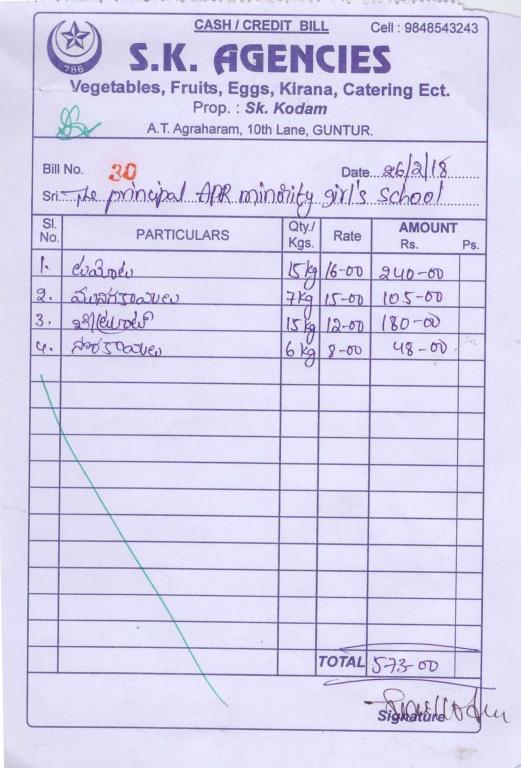 CASH / CREDIT BILL
Cell : 9848543243
786
S.K. AGENCIES
Vegetables, Fruits, Eggs, Kirana, Catering Ect.
Prop. : Sk. Kodam
A.T. Agraharam, 10th Lane, GUNTUR.
Bill No. 30 Date 26/2/18
Sri. The principal APR minority girl's school
Sl. No. PARTICULARS Qty./ Kgs. Rate AMOUNT Rs. Ps.
1. టమోటాలు 15kg 16-00 240-00
2. మునగకాయలు 7kg 15-00 105-00
3. 15kg 12-00 180-00
4. సొరకాయలు 6kg 8-00 48-00
TOTAL 573-00
Signature